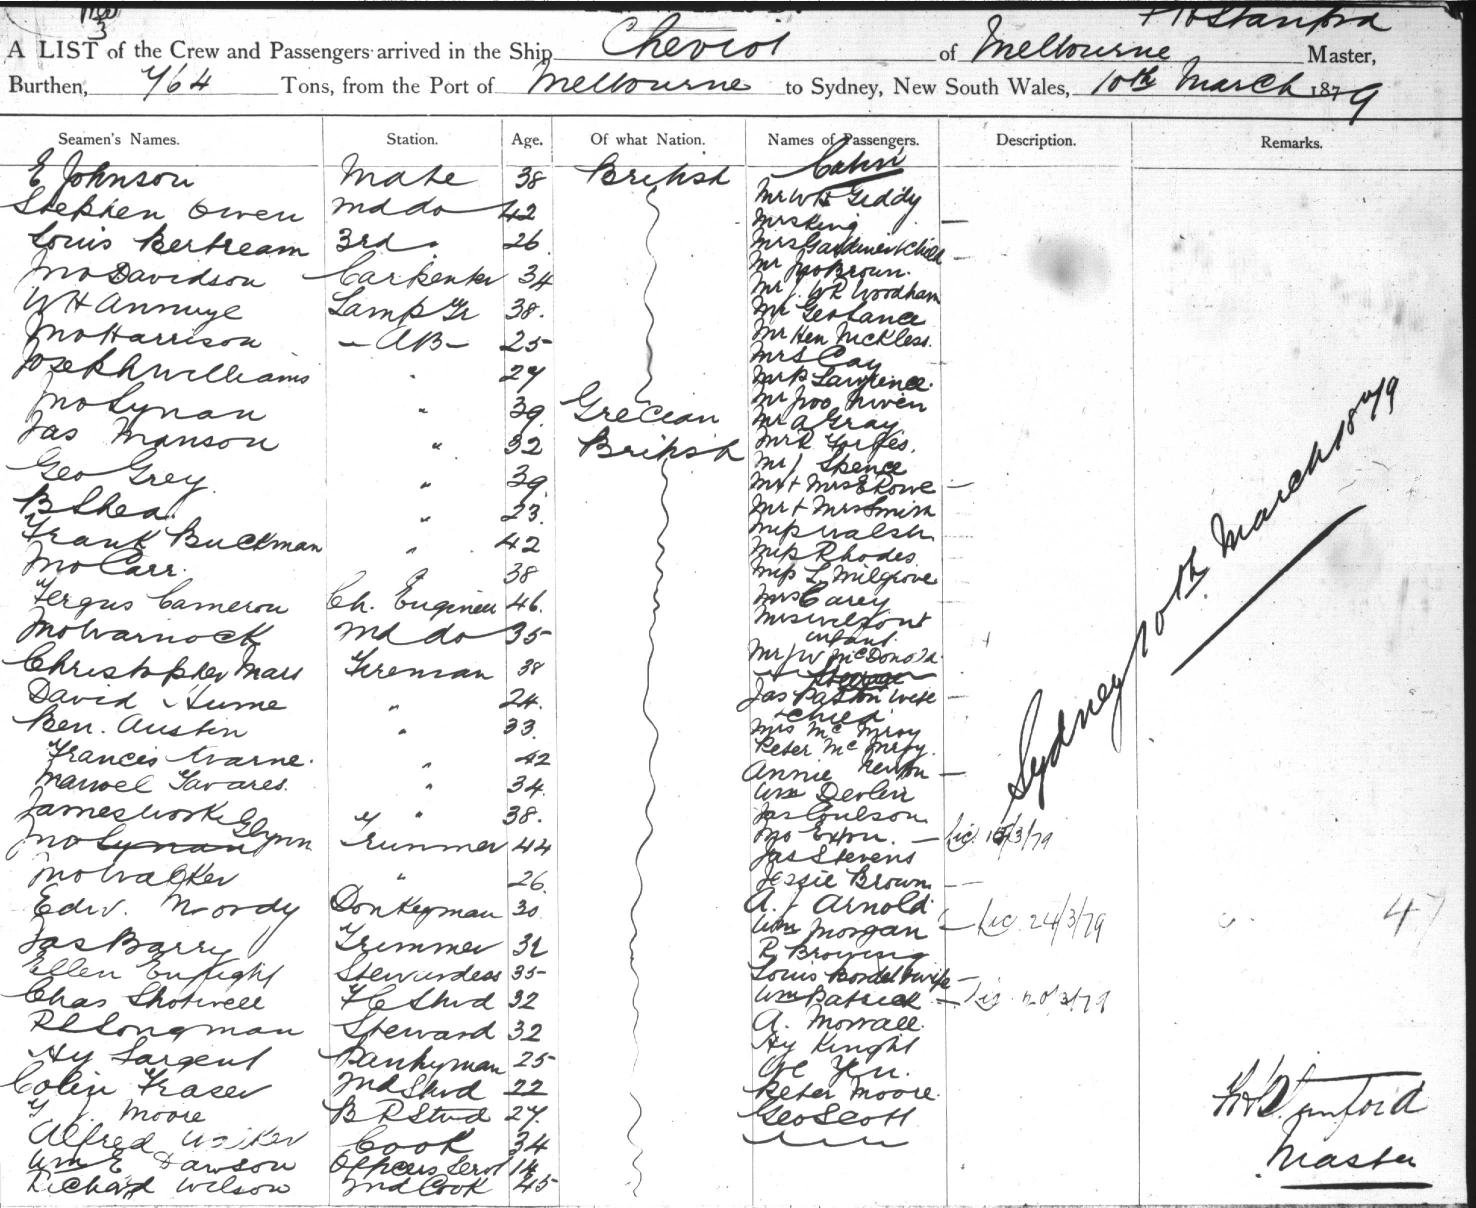 3
F H Stanford
A LIST of the Crew and Passengers arrived in the Ship Cheviot of Melbourne Master,
Burthen, 764 Tons, from the Port of Melbourne to Sydney, New South Wales, 10th March 1879
Seamen's Names. Station. Age. Of what Nation. Names of Passengers. Description. Remarks.
E Johnson Mate 38 British
Stephen Owen 2nd do 42
Louis Bertream 3rd " 26
Jno Davidson Carpenter 34
W H Lamp Tr 38.
Jno Harrison - AB - 25
Joseph Williams " 27
Jno Lynan " 39 Grecian
Jas Manson " 32 British
Geo Grey " 39
B Shea " 23
Frank Buckman " 42
Jno Carr " 38
Fergus Cameron Ch. Engineer 46
Jno Warnock 2nd do 35
Christopher Mars Fireman 38
David Hume " 24
Ben. Austin " 33
Francis " 42
Manoel Tavares " 34
James Work " 38
Jno Lynan Glynn Trimmer 44
Jno Walker " 26
Edw. Moody Donkeyman 30
Jas Barry Trimmer 32
Ellen Enright Stewardess 35
Chas Shotwell F C Stwd 32
R Longman Steward 32
Hy Sargent Pantryman 25
Colin Fraser 2nd Stwd 22
Moore B R Stwd 27
Alfred Walker Cook 34
Wm E Dawson Officers Servt 14
Richard Wilson 2nd Cook 45
Cabin
Mr W H Geddy
Mrs King —
Mrs Gardiner & Child —
Mr Jno Brown
Mr J. W R Woodham
Mr Geo Lance
Mr Hen Nickless
Mrs Cay
Miss Lawrence
Mr Jno Niven
Mr A Gray
Mr R Forbes
Mr J Spence
Mr + Mrs E Rowe —
Mr + Mrs Smith
Miss Walsh
Miss Rhodes
Miss L Milgrove
Mrs Carey
Mrs Wilson &
infant
Mr J W McDonald
Steerage
Jas Paston wife —
+ child
Mrs McMroy
Peter McMroy
Annie Newton —
Wm Devlin
Jas Coulson
Jno Exton — Lic. 15/3/79
Jas Stevens
Jessie Brown —
A. J Arnold
Wm Morgan — Lic. 24/3/79
R Browning
Louis Bordel & wife —
Wm Patrick — Lic. 20/3/79
A. Morrall
Hy Knight
Peter Moore
Geo Scott
Sydney 10th March 1879
47
F H Stanford
Master